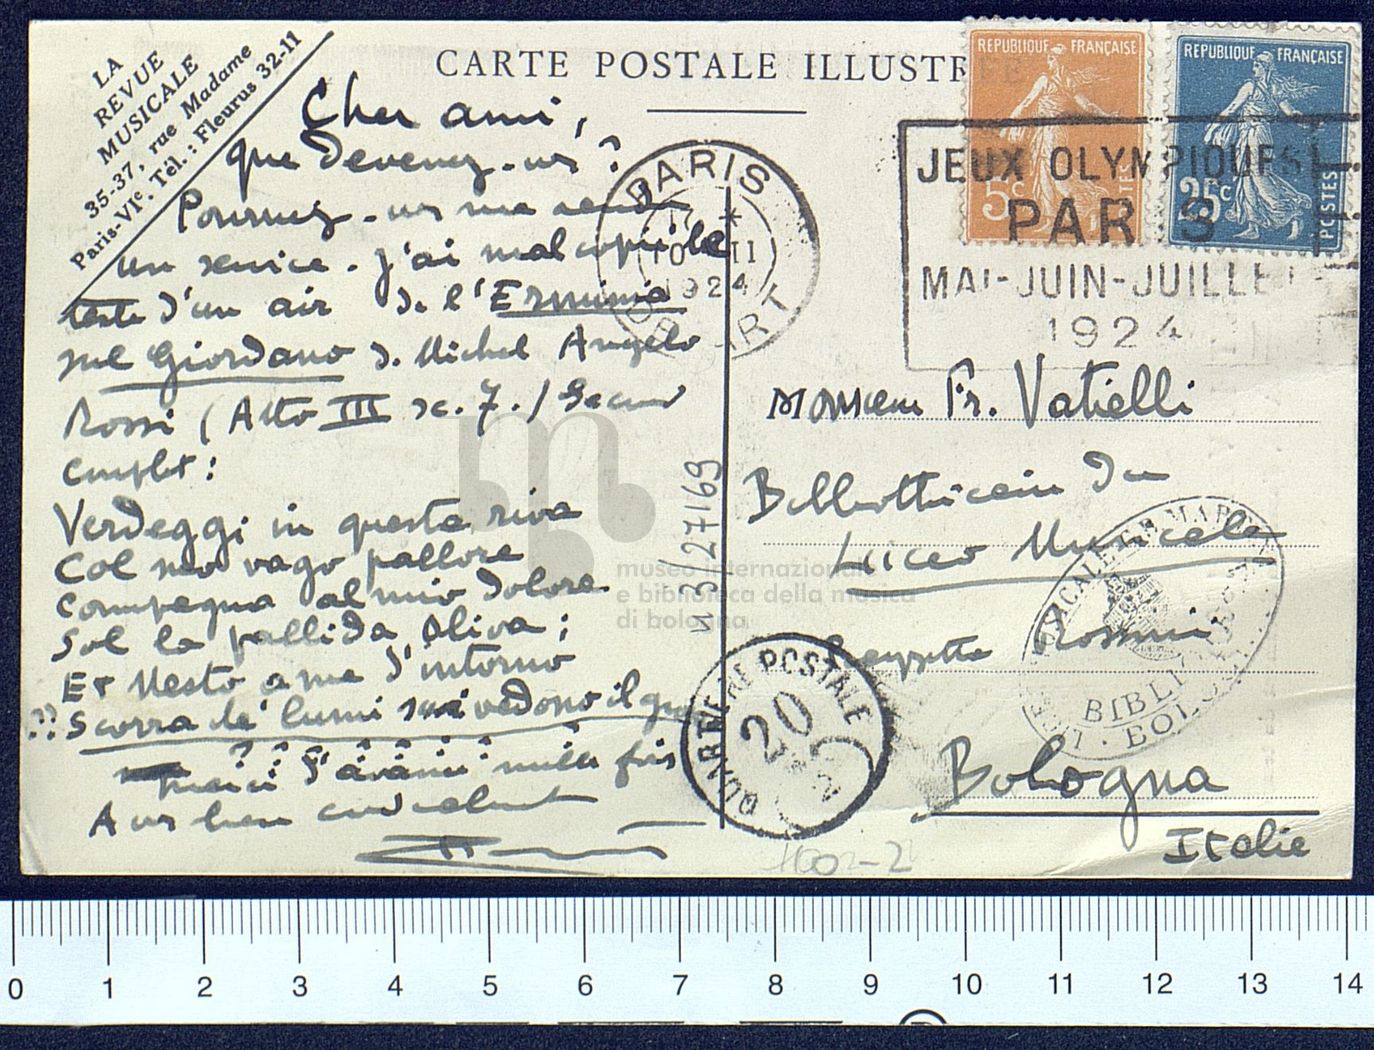 LA
REVUE
MUSICALE
35-37, rue Madame
Paris-VIe. Tél. : Fleurus 32-11
CARTE POSTALE ILLUSTRÉE
RÉPUBLIQUE FRANÇAISE
5c
POSTES
RÉPUBLIQUE FRANÇAISE
25c
POSTES
JEUX OLYMPIQUES
PARIS
MAI-JUIN-JUILLET
1924
PARIS
17 *
10 II
1924
DEPART
Cher ami,
que devenez-vs ?
Pourriez-vs me rendre
un service. J'ai mal copié le
texte d'un air de l'Erminia
sul Giordano d. Michel Angelo
Rossi (Atto III sc. 7.) Second
couplet :
Verdeggi in questa riva
Col suo vago pallore
Compagna al mio dolore
Sol la pallida Oliva ;
Et Mesto a me d'intorno
?? Scorra de' lumi
vedono il
? ? ? ? ? ? ?
merci d'avance mille fois
A vs bien cordialement
Monsieur Fr. Vatielli
Bibliothécaire du
Liceo Musicale
Piazzetta Rossini
Bologna
Italie
N 327169
QUARTIERE POSTALE
20
BIBLIOTECA
BOLOGNA
museo internazionale
e biblioteca della musica
di bologna
0 1 2 3 4 5 6 7 8 9 10 11 12 13 14